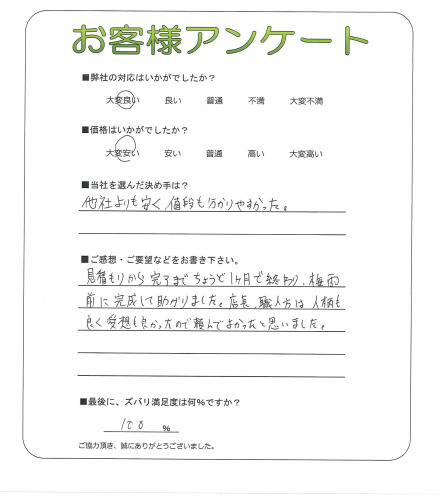 お客様アンケート
■弊社の対応はいかがでしたか?
大変良い 良い 普通 不満 大変不満
■価格はいかがでしたか?
大変安い 安い 普通 高い 大変高い
■当社を選んだ決め手は?
他社よりも安く、値段も分かりやすかった。
■ご感想・ご要望などをお書き下さい。
見積もりから完了までちょうど1ヶ月で終わり、梅雨
前に完成して助かりました。店長、職人方は人柄も
良く愛想も良かったので頼んでよかったと思いました。
■最後に、ズバリ満足度は何%ですか?
100 %
ご協力頂き、誠にありがとうございました。